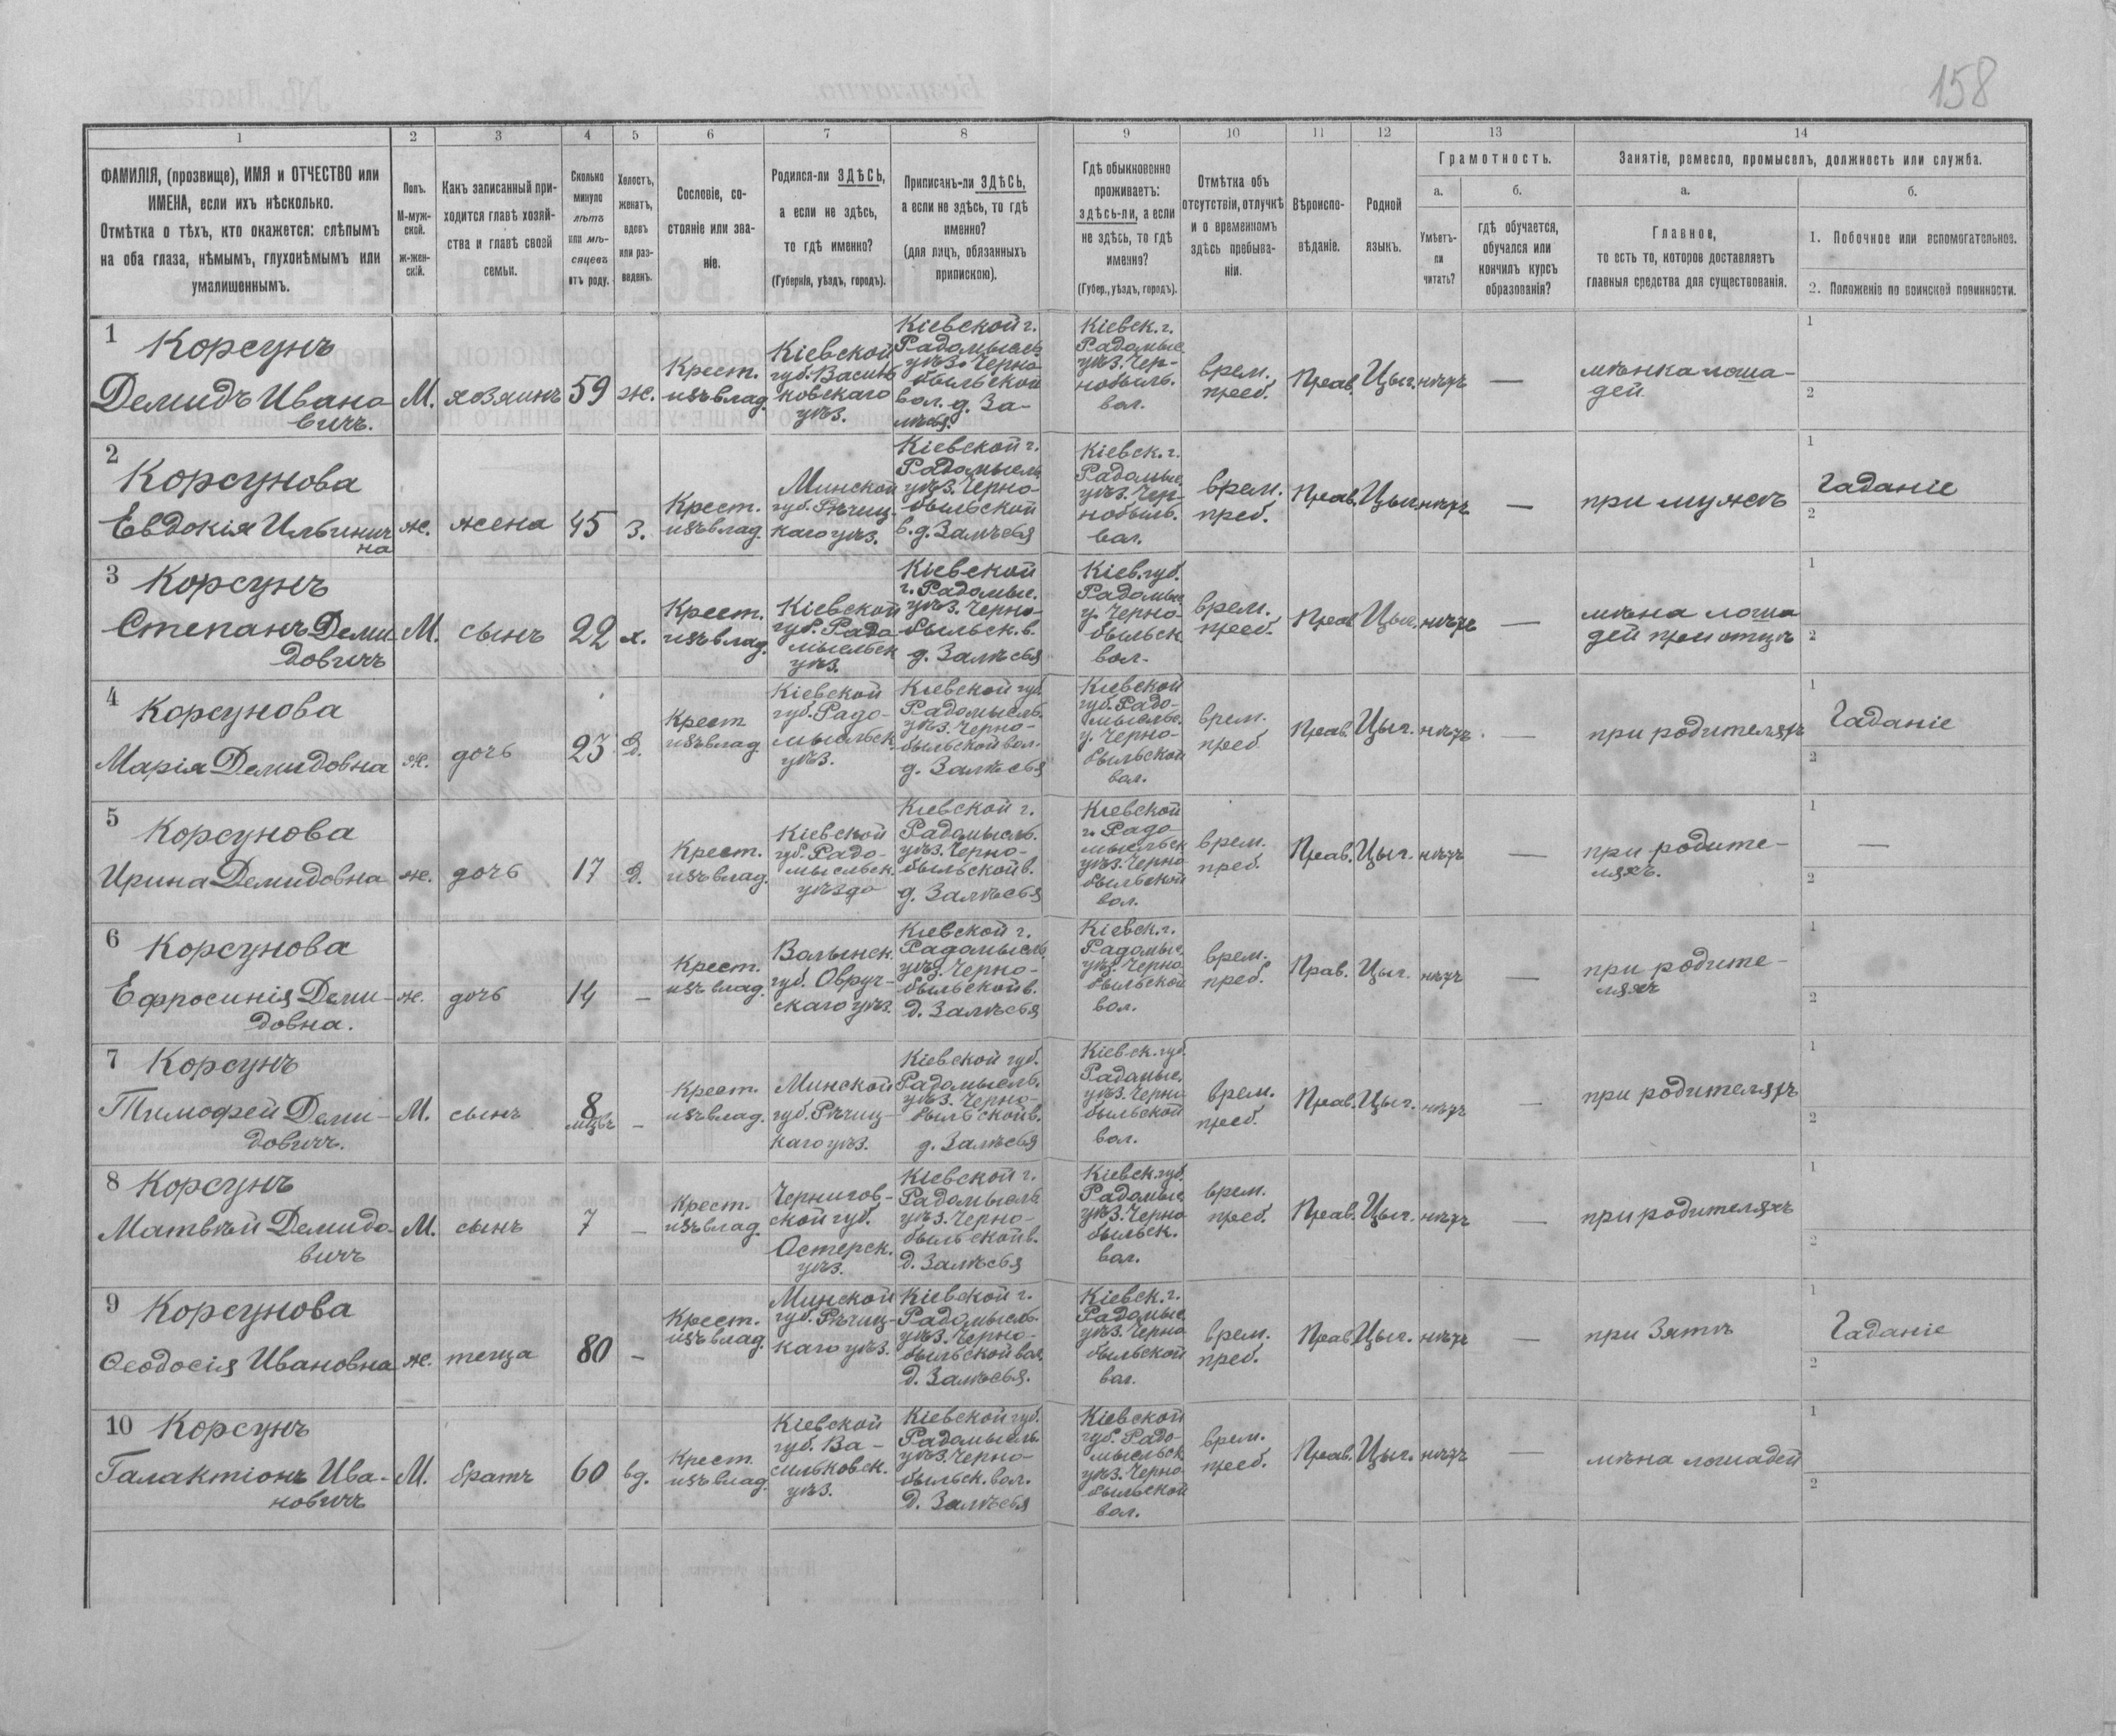 158
1 2 3 4 5 6 7 8 9 10 11 12 13 14
ФАМИЛІЯ, (прозвище), ИМЯ и ОТЧЕСТВО или
ИМЕНА, если ихъ нѣсколько.
Отмѣтка о тѣхъ, кто окажется: слѣпымъ
на оба глаза, нѣмымъ, глухонѣмымъ или
умалишеннымъ.
Полъ.
М-муж-
ской.
Ж-жен-
скій.
Какъ записанный при-
ходится главѣ хозяй-
ства и главѣ своей
семьи.
Сколько
минуло
лѣтъ
или мѣ-
сяцевъ
отъ роду.
Холостъ,
женатъ,
вдовъ
или раз-
веденъ.
Сословіе, со-
стояніе или зва-
ніе.
Родился-ли ЗДѢСЬ,
а если не здѣсь,
то гдѣ именно?
(Губернія, уѣздъ, городъ).
Приписанъ-ли ЗДѢСЬ,
а если не здѣсь, то гдѣ
именно?
(для лицъ, обязанныхъ
припискою).
Гдѣ обыкновенно
проживаетъ:
здѣсь-ли, а если
не здѣсь, то гдѣ
именно?
(Губер., уѣздъ, городъ).
Отмѣтка объ
отсутствіи, отлучкѣ
и о временномъ
здѣсь пребыва-
ніи.
Вѣроиспо-
вѣданіе.
Родной
языкъ.
Грамотность.
а.
Умѣетъ-
ли
читать?
б.
гдѣ обучается,
обучался или
кончилъ курсъ
образованія?
Занятіе, ремесло, промыселъ, должность или служба.
а.
Главное,
то есть то, которое доставляетъ
главныя средства для существованія.
б.
1. Побочное или вспомогательное.
2. Положеніе по воинской повинности.
1
Корсунъ
Демидъ Ивано
вичъ.
М.
хозяинъ
59
ж.
Крест.
изъ влад.
Кіевской
губ. Василь
ковскаго
уѣз.
Кіевской г.
Радомысль
уѣз. Черно
быльской
вол. д. За-
лѣсья.
Кіевск. г.
Радомыс.
уѣз. Чер-
нобыль.
вол.
врем.
преб.
Прав.
Цыг.
нѣтъ
—
мѣнка лоша-
дей
1
2
2
Корсунова
Евдокія Ильинич
на
ж.
жена
45
з.
Крест.
изъ влад.
Минской
губ. Рѣчиц-
каго уѣз.
Кіевской г.
Радомысль
уѣз. Черно-
быльской
в. д. Залѣсья
Кіевск. г.
Радомыс.
уѣз. Чер-
нобыль.
вол.
врем.
преб.
Прав.
Цыг.
нѣтъ
—
при мужѣ
1
Гаданіе
2
3
Корсунъ
Степанъ Деми
довичъ
М.
сынъ
22
х.
Крест.
изъ влад.
Кіевской
губ. Радо
мысльск
уѣз.
Кіевской
г. Радомыс.
уѣз. Черно-
быльск. в.
д. Залѣсья
Кіев. губ.
Радомыс.
у. Черно-
быльск
вол.
врем.
преб.
Прав
Цыг.
нѣтъ
—
мѣна лоша
дей при отцѣ
1
2
4
Корсунова
Марія Демидовна
ж.
дочь
23
д.
Крест
изъ влад
Кіевской
губ. Радо-
мысльск
уѣз.
Кіевской губ
Радомысль.
уѣз. Черно-
быльской вол.
д. Залѣсья
Кіевской
губ. Радо-
мысльс.
у. Черно-
быльской
вол.
врем.
преб
Прав.
Цыг.
нѣтъ.
—
при родителяхъ
1
Гаданіе
2
5
Корсунова
Ирина Демидовна
ж.
дочь
17
д.
Крест.
изъ влад.
Кіевской
губ. Радо-
мысльск.
уѣзда
Кіевской г.
Радомысль.
уѣз. Черно-
быльской в.
д. Залѣсья
Кіевской
г. Радо
мысльск
уѣз. Черно
быльской
вол.
врем.
преб.
Прав.
Цыг.
нѣтъ
—
при родите-
ляхъ.
1
—
2
6
Корсунова
Ефросинія Деми-
довна.
ж.
дочь
14
—
Крест.
изъ влад.
Волынск.
губ. Овруч-
скаго уѣз.
Кіевской г.
Радомысль
уѣз. Черно-
быльской в.
д. Залѣсья
Кіевск. г.
Радомыс.
уѣз. Черно
быльской
вол.
врем.
преб.
Прав.
Цыг.
нѣтъ
—
при родите-
ляхъ
1
2
7
Корсунъ
Тимофей Деми-
довичъ.
М.
сынъ
8
мцвъ
—
Крест.
изъ влад.
Минской
губ. Рѣчиц-
каго уѣз.
Кіевской губ.
Радомысль.
уѣз. Черно-
быльской в.
д. Залѣсья
Кіевск. губ.
Радомыс.
уѣз. Черно
быльской
вол.
врем.
преб.
Прав.
Цыг.
нѣтъ
—
при родителяхъ
1
2
8
Корсунъ
Матвѣй Демидо-
вичъ
М.
сынъ
7
—
Крест.
изъ влад.
Чернигов-
ской губ.
Остерск.
уѣз.
Кіевской г.
Радомысль
уѣз. Черно-
быльской в.
д. Залѣсья
Кіевск. губ.
Радомыс
уѣз. Черно
быльск.
вол.
врем.
преб.
Прав.
Цыг.
нѣтъ
—
при родителяхъ
1
2
9
Корсунова
Ѳеодосія Ивановна
ж.
теща
80
—
Крест.
изъ влад.
Минской
губ. Рѣчиц-
каго уѣз.
Кіевской г.
Радомысль
уѣз. Черно-
быльской вол
д. Залѣсья.
Кіевск. г.
Радомыс
уѣз. Черно
быльской
вол.
врем.
преб.
Прав
Цыг.
нѣтъ
—
при Зятѣ
1
Гаданіе
2
10
Корсунъ
Галактіонъ Ива-
новичъ
М.
братъ
60
вд.
Крест.
изъ влад.
Кіевской
губ. Ва-
сильковск.
уѣз.
Кіевской губ.
Радомысль.
уѣз. Черно-
быльск. вол.
д. Залѣсья
Кіевской
губ. Радо-
мысльск
уѣз. Черно
быльской
вол.
врем.
преб.
Прав.
Цыг.
нѣтъ
—
мѣна лошадей
1
2